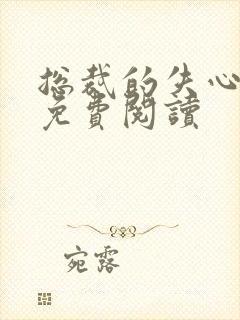 总裁的失心
免費閱讀
宛露